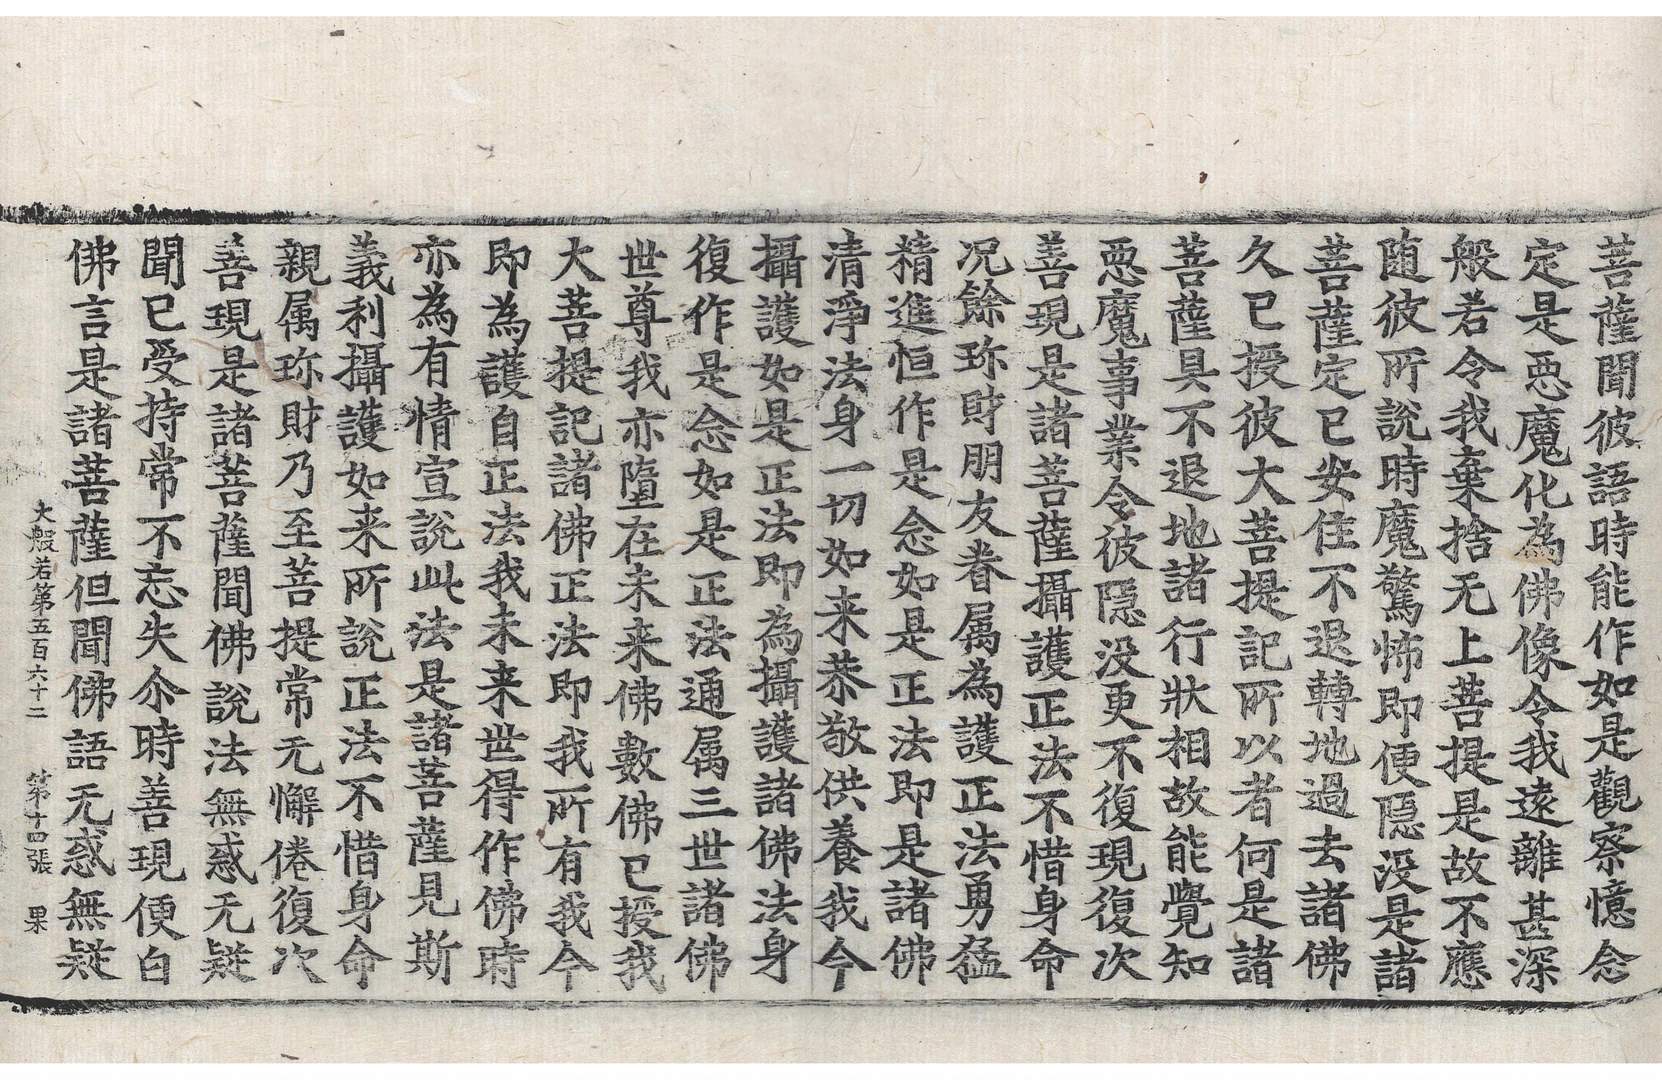 菩薩聞彼語時能作如是觀察憶念
定是惡魔化為佛像令我遠離甚深
般若令我棄捨无上菩提是故不應
随彼所說時魔驚怖即便隱没是諸
菩薩定已安住不退轉地過去諸佛
久已授彼大菩提記所以者何是諸
菩薩具不退地諸行狀相故能覺知
惡魔事業令彼隱没更不復現復次
善現是諸菩薩攝護正法不惜身命
况餘珎財朋友眷属為護正法勇猛
精進恒作是念如是正法即是諸佛
清淨法身一切如来恭敬供養我今
攝護如是正法即為攝護諸佛法身
復作是念如是正法通属三世諸佛
世尊我亦墮在未来佛數佛已授我
大菩提記諸佛正法即我所有我今
即為護自正法我未来世得作佛時
亦為有情宣說此法是諸菩薩見斯
義利攝護如来所說正法不惜身命
親属珎財乃至菩提常无懈倦復次
善現是諸菩薩聞佛說法無惑无疑
聞已受持常不忘失尒時善現便白
佛言是諸菩薩但聞佛語无惑無疑
大般若第五百六十二 第十四張 果